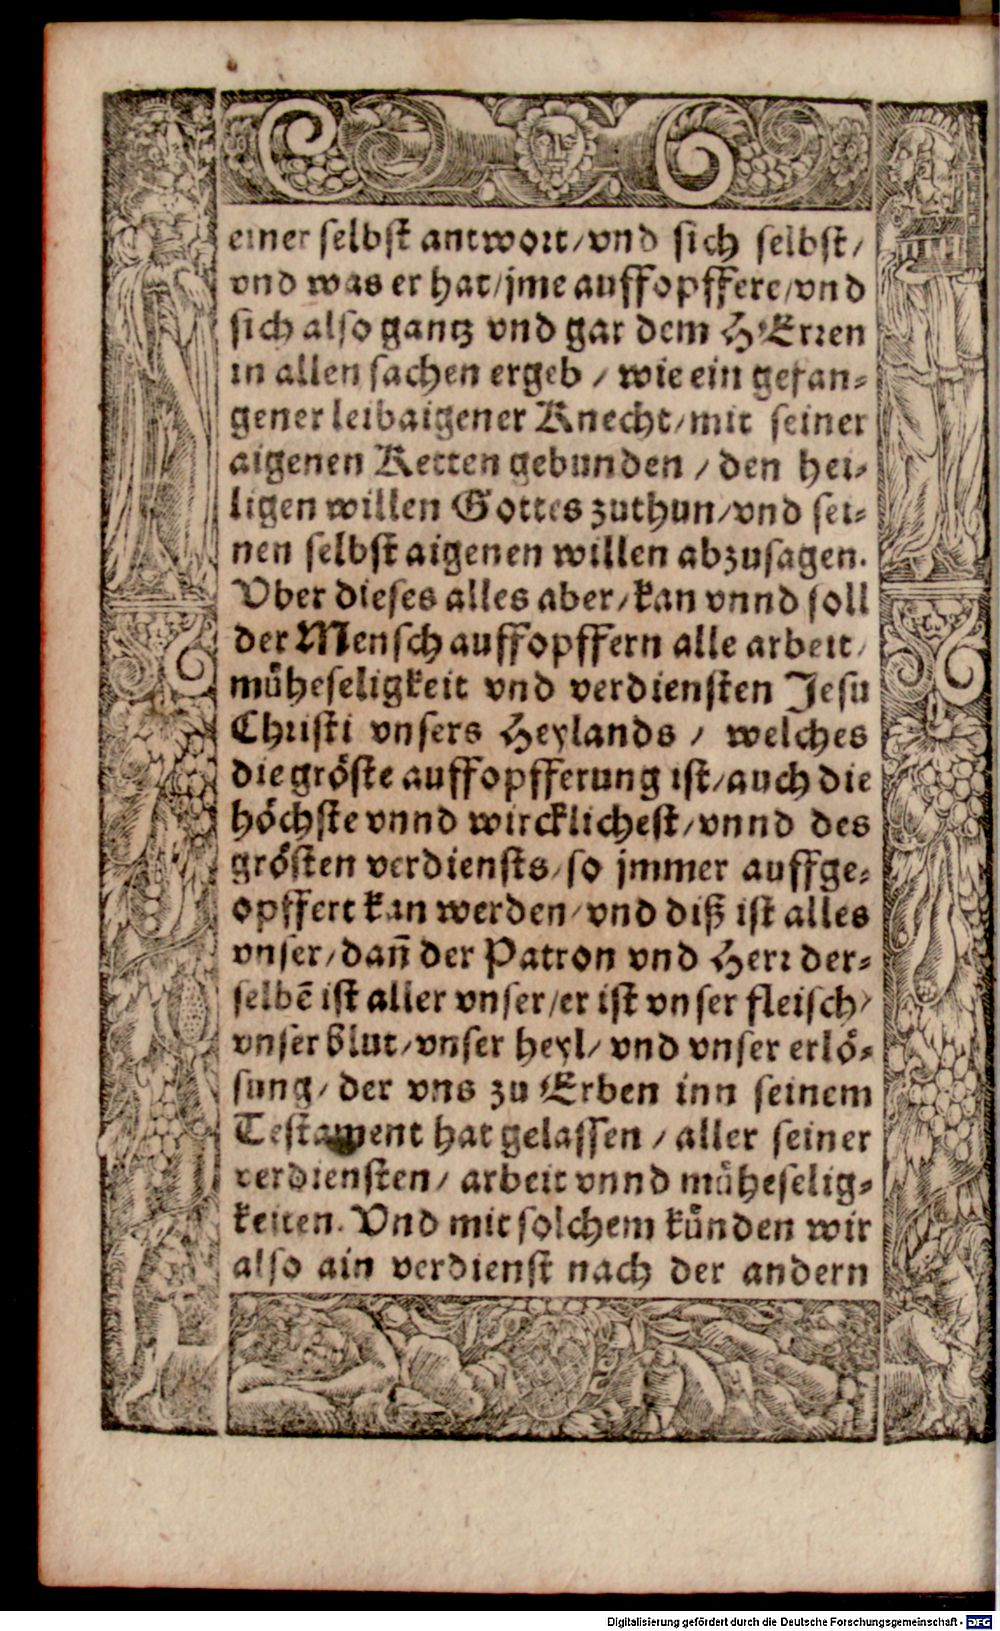 einer selbst antwort/vnd sich selbst/
vnd was er hat/jme auffopffere/vnd
sich also gantz vnd gar dem HErren
in allen sachen ergeb / wie ein gefan-
gener leibaigener Knecht/mit seiner
aigenen Ketten gebunden / den hei-
ligen willen Gottes zuthun/vnd sei-
nen selbst aigenen willen abzusagen.
Vber dieses alles aber/kan vnnd soll
der Mensch auffopffern alle arbeit/
müheseligkeit vnd verdiensten Jesu
Christi vnsers Heylands / welches
die gröste auffopfferung ist/auch die
höchste vnnd wircklichest/vnnd des
grösten verdiensts/so jmmer auffge-
opffert kan werden/vnd diß ist alles
vnser/dañ der Patron vnd Herr der-
selbē ist aller vnser/er ist vnser fleisch/
vnser blut/vnser heyl/ vnd vnser erlö-
sung/ der vns zu Erben inn seinem
Testament hat gelassen / aller seiner
verdiensten/ arbeit vnnd müheselig-
keiten. Vnd mit solchem künden wir
also ain verdienst nach der andern
Digitalisierung gefördert durch die Deutsche Forschungsgemeinschaft - DFG